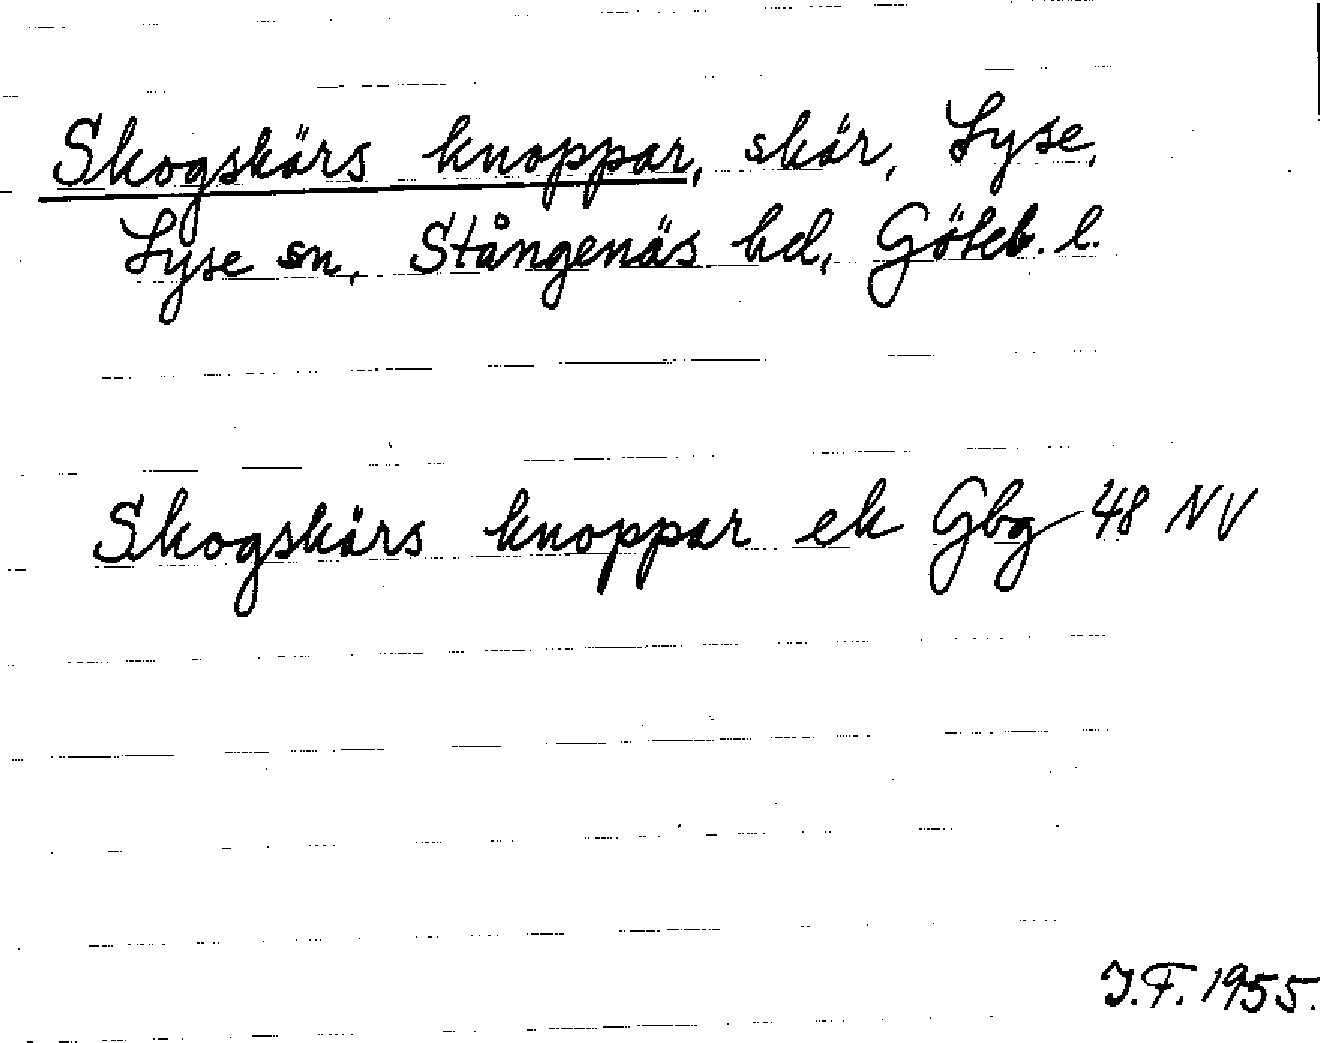 Skogskärs knoppar, skär, Lyse,
Lyse sn, Stångenäs hd, Göteb. l.
Skogskärs knoppar ek Gbg 48 NV
I.F. 1955.